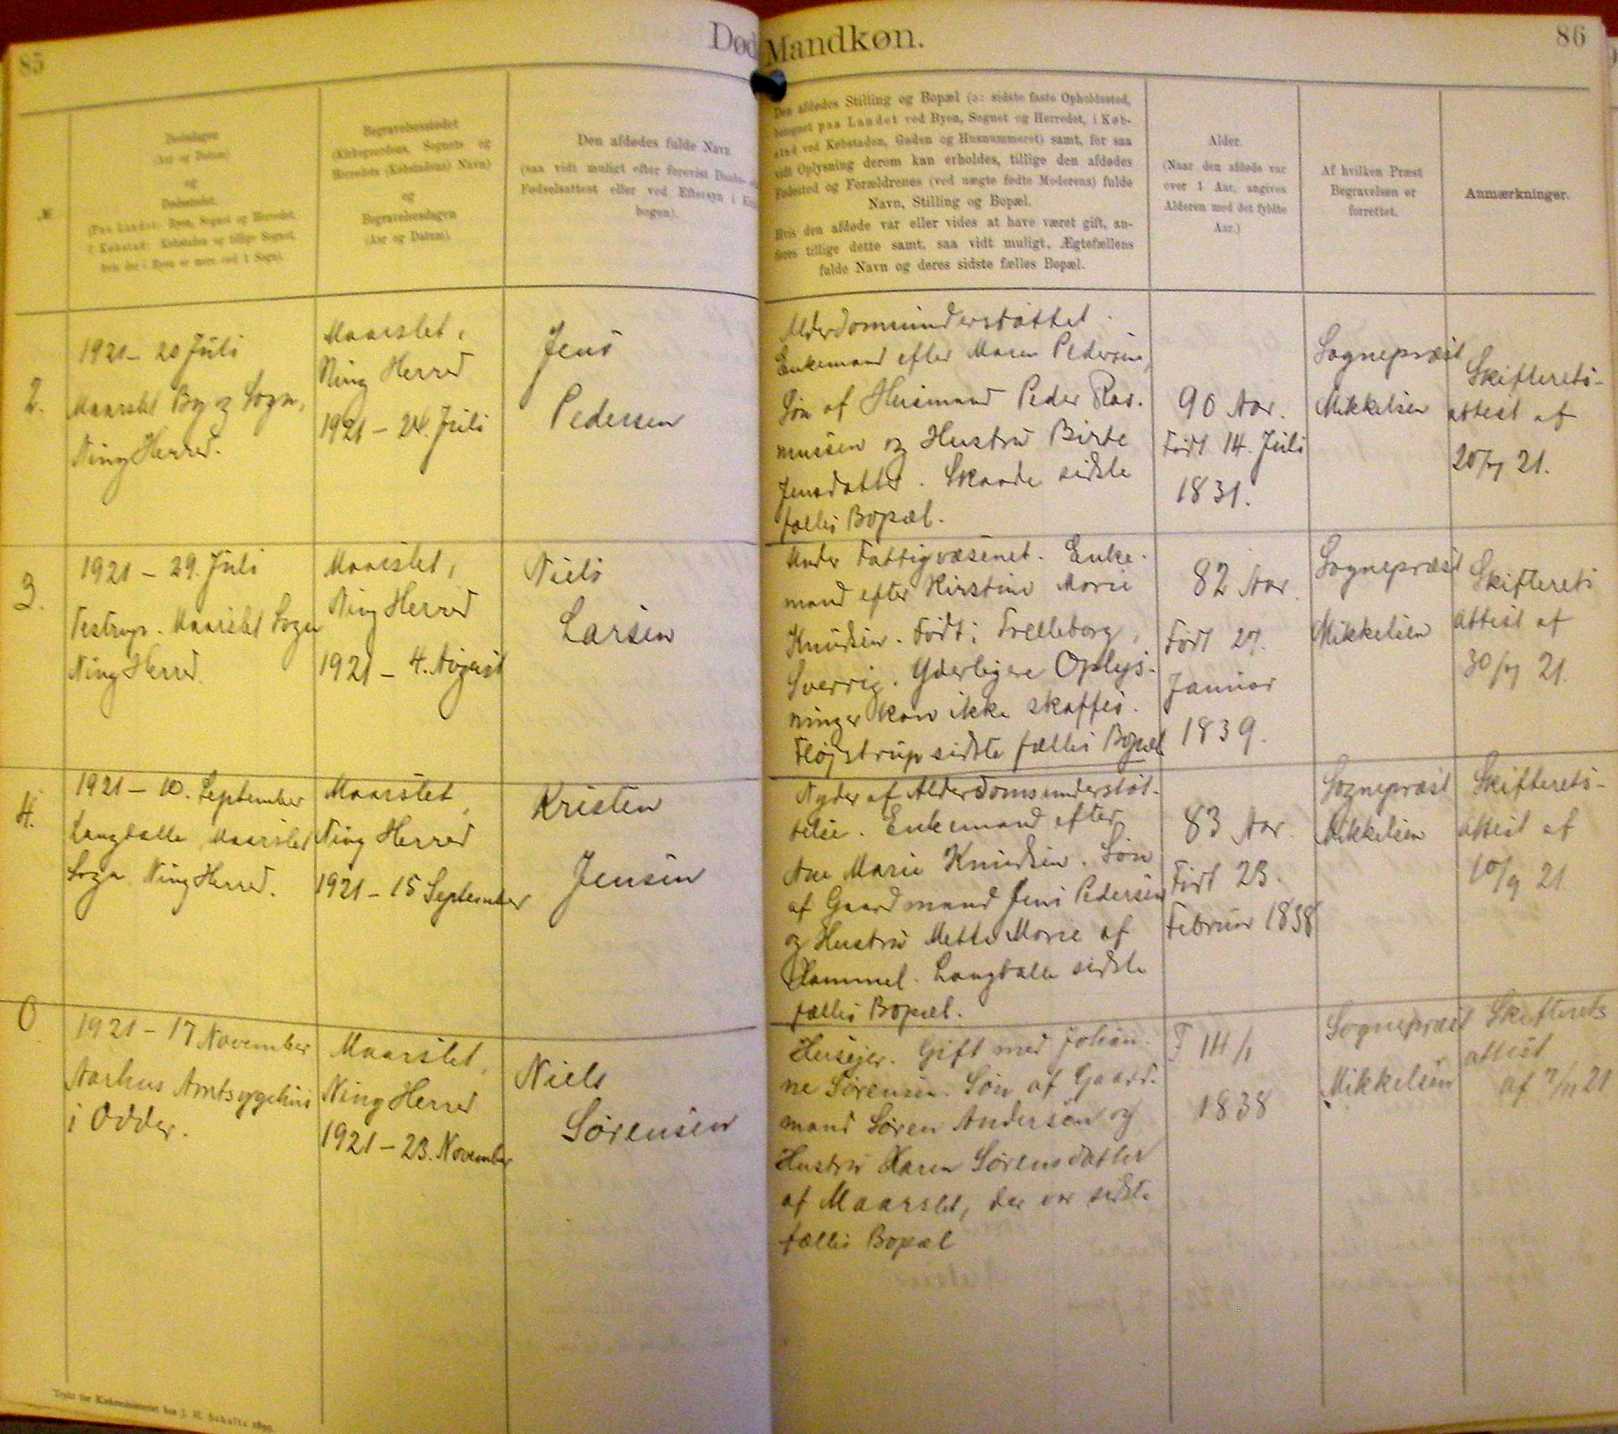 85
Død
Mandkøn.
86
№
Dødsdagen
(Aar og Datum)
og
Dødsstedet.
(Paa Landet: Byen, Sognet og Herredet,
i Købstad: Købstaden og tillige Sognet,
hvis der i Byen er mere end 1 Sogn).
Begravelsesstedet
(Kirkegaardens, Sognets og
Herredets (Købstadens) Navn)
og
Begravelsesdagen
(Aar og Datum).
Den afdødes fulde Navn
(saa vidt muligt efter forevist Daabs-
Fødselsattest eller ved Eftersyn i
bogen).
Den afdødes Stilling og Bopæl (o: sidste faste Opholdssted,
betegnet paa Landet ved Byen, Sognet og Herredet, i Køb-
stad ved Købstaden, Gaden og Husnummeret) samt, for saa
vidt Oplysning derom kan erholdes, tillige den afdødes
Fødested og Forældrenes (ved uægte fødte Moderens) fulde
Navn, Stilling og Bopæl.
Hvis den afdøde var eller vides at have været gift, an-
føres tillige dette samt, saa vidt muligt, Ægtefællens
fulde Navn og deres sidste fælles Bopæl.
Alder.
(Naar den afdøde var
over 1 Aar, angives
Alderen med det fyldte
Aar.)
Af hvilken Præst
Begravelsen er
forrettet.
Anmærkninger.
2.
1921 - 20 Juli
Maarslet By og Sogn,
Ning Herred.
Maarslet,
Ning Herred
1921 - 24. Juli
Jens
Pedersen
Alderdomsunderstøttet.
Enkemand efter Maren Pedersen,
Søn af Husmand Peder Ras-
mussen og Hustru Birte
Jensdatter. Skaade sidste
fælles Bopæl.
90 Aar.
Født 14. Juli
1831.
Sognepræst
Mikkelsen
Skifterets-
attest af
20/7 21.
3.
1921 - 29. Juli
Testrup. Maarslet Sogn
Ning Herred
Maarslet,
Ning Herred
1921 - 4. August
Niels
Larsen
Under Fattigvæsenet. Enke-
mand efter Kirstine Marie
Knudsen. Født i Trelleborg,
Sverrig. Yderligere Oplys-
ninger kan ikke skaffes.
Fløjstrup sidste fælles Bopæl
82 Aar.
Født 27.
Januar
1839.
Sognepræst
Mikkelsen
Skifterets
attest af
30/7 21.
4.
1921 - 10. September
Langballe, Maarslet
Sogn Ning Herred.
Maarslet,
Ning Herred
1921 - 15 September
Kristen
Jensen
Nyder af Alderdomsunderstøt-
telse. Enkemand efter
Ane Marie Knudsen. Søn
af Gaardmand Jens Pedersen
og Hustru Mette Marie af
Hammel. Langballe sidste
fælles Bopæl.
83 Aar.
Født 23.
Februar 1838
Sognepræst
Mikkelsen
Skifterets-
attest af
10/9 21.
0
1921 - 17 November
Aarhus Amtssygehus
i Odder.
Maarslet,
Ning Herred
1921 - 23. November
Niels
Sørensen
Husejer. Gift med Johan-
ne Sørensen. Søn af Gaard-
mand Søren Andersen og
Hustru Karen Sørensdatter
af Maarslet, der var sidste
fælles Bopæl
F 14/1
1838
Sognepræst
Mikkelsen
Skifterets
attest
21